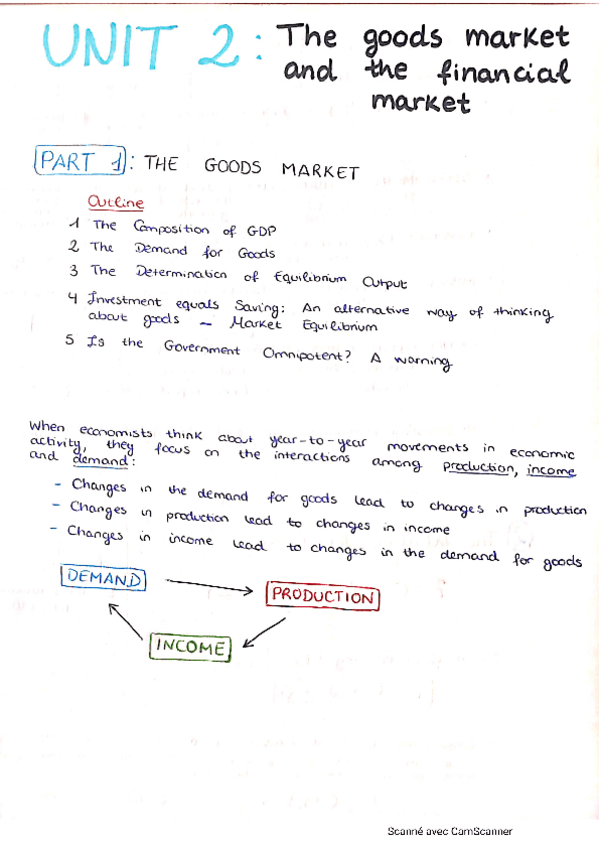 UNIT 2: The goods market
and the financial
market
PART 1: THE GOODS MARKET
Outline
1 The Composition of GDP
2 The Demand for Goods
3 The Determination of Equilibrium Output
4 Investment equals Saving: An alternative way of thinking
about goods - Market Equilibrium
5 Is the Government Omnipotent? A warning
When economists think about year-to-year movements in economic
activity, they focus on the interactions among production, income
and demand:
- Changes in the demand for goods lead to changes in production
- Changes in production lead to changes in income
- Changes in income lead to changes in the demand for goods
DEMAND
PRODUCTION
INCOME
Scanné avec CamScanner